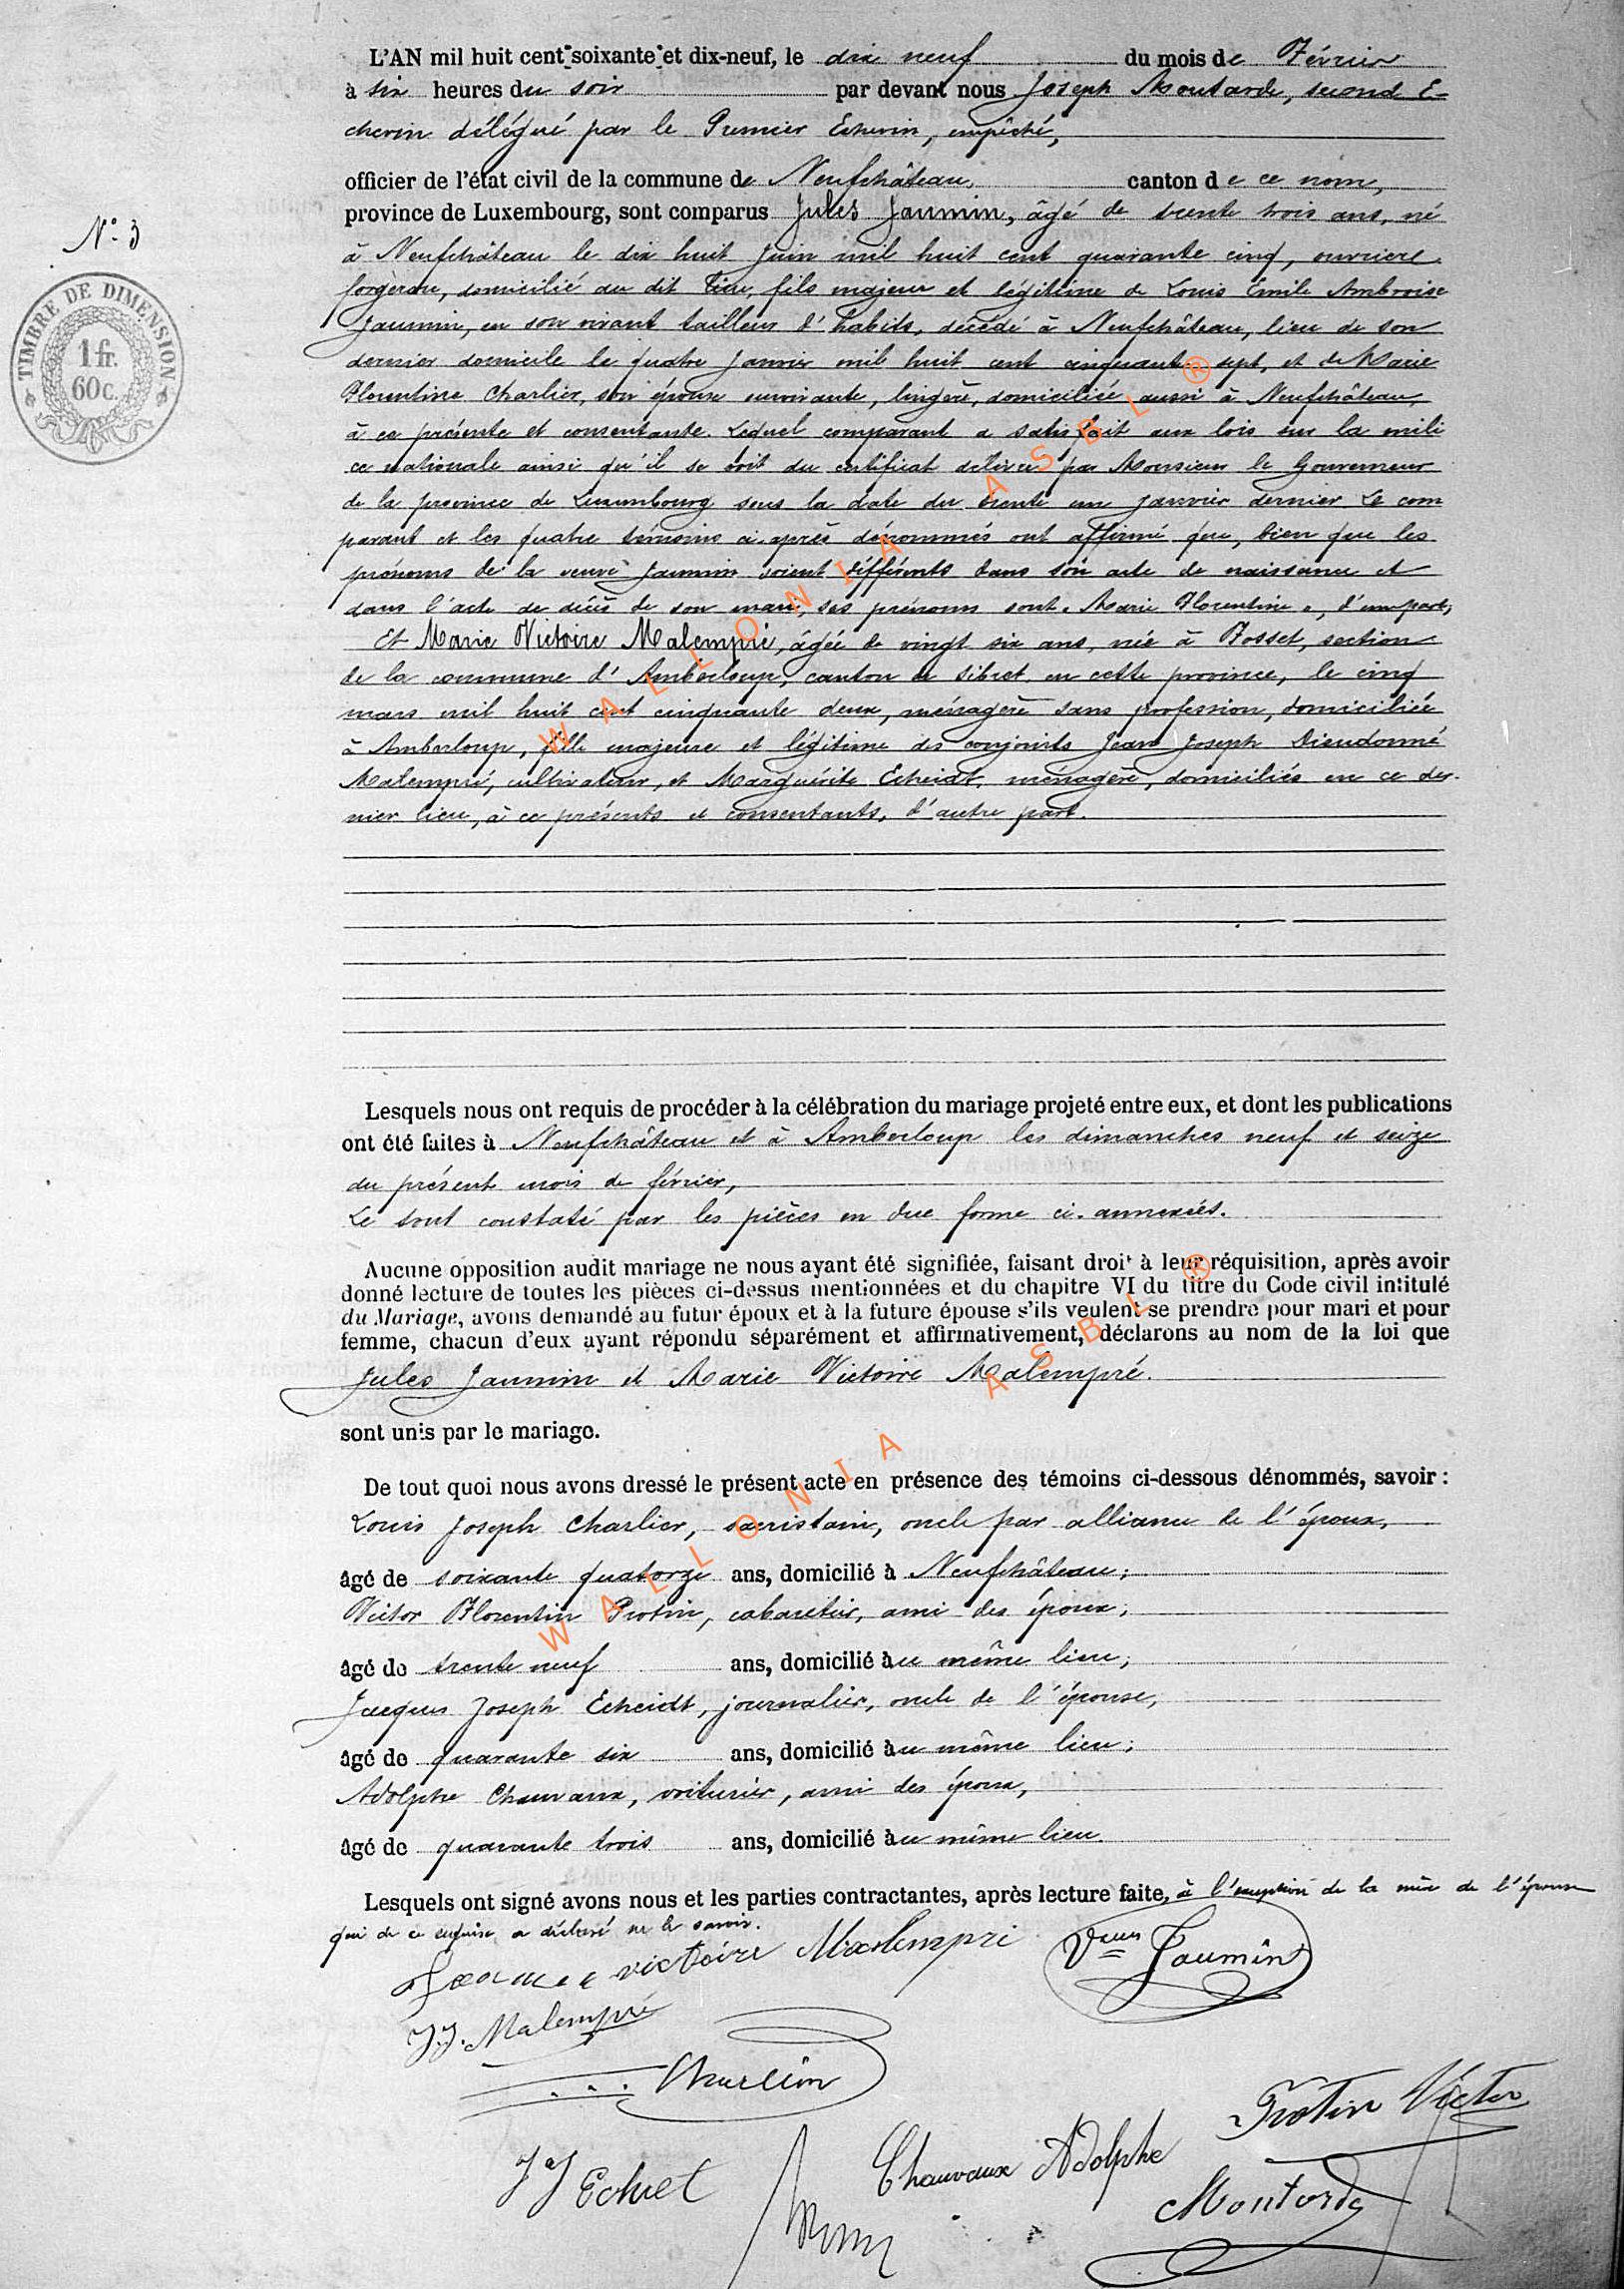 L'AN mil huit cent soixante et dix-neuf, le dix neuf du mois de Février
à six heures du soir par devant nous Joseph Moutarde, second E-
chevin délégué par le Premier Echevin, empêché,
officier de l'état civil de la commune de Neufchâteau, canton de ce nom,
province de Luxembourg, sont comparus Jules Jaumin, âgé de trente trois ans, né
N° 3
à Neufchâteau le dix huit Juin mil huit cent quarante cinq, ouvrier
forgeron, domicilié au dit lieu, fils majeur et légitime de Louis Emile Ambroise
TIMBRE DE DIMENSION
1 fr.
60 c.
Jaumin, en son vivant tailleur d'habits, décédé à Neufchâteau, lieu de son
dernier domicile le quatre Janvier mil huit cent cinquante sept, et de Marie
Florentine Charlier, son épouse survivante, lingère, domiciliée aussi à Neufchâteau,
à ce présente et consentante. Lequel comparant a satisfait aux lois sur la mili
ce nationale ainsi qu'il se voit du certificat délivré par Monsieur le Gouverneur
de la province de Luxembourg sous la date du trente un janvier dernier. Le com
parant et les quatre témoins ci-après dénommés ont affirmé que, bien que les
prénoms de la veuve Jaumin soient différents dans son acte de naissance et
dans l'acte de décès de son mari, ses prénoms sont "Marie Florentine", d'une part,
Et Marie Victoire Malempré, âgée de vingt six ans, née à Fosset, section
de la commune d'Amberloup, canton de Sibret en cette province, le cinq
mars mil huit cent cinquante deux, ménagère sans profession, domiciliée
à Amberloup, fille majeure et légitime des conjoints Jean Joseph Dieudonné
Malempré, cultivateur, et Marguérite Echeidt, ménagère, domiciliés en ce der-
nier lieu, à ce présents et consentants, d'autre part.
WALLONIA ASBL ®
Lesquels nous ont requis de procéder à la célébration du mariage projeté entre eux, et dont les publications
ont été faites à Neufchâteau et à Amberloup les dimanches neuf et seize
du présent mois de février,
Le tout constaté par les pièces en due forme ci-annexées.
Aucune opposition audit mariage ne nous ayant été signifiée, faisant droit à leur réquisition, après avoir
donné lecture de toutes les pièces ci-dessus mentionnées et du chapitre VI du titre du Code civil intitulé
du Mariage, avons demandé au futur époux et à la future épouse s'ils veulent se prendre pour mari et pour
femme, chacun d'eux ayant répondu séparément et affirmativement, déclarons au nom de la loi que
Jules Jaumin et Marie Victoire Malempré.
sont unis par le mariage.
De tout quoi nous avons dressé le présent acte en présence des témoins ci-dessous dénommés, savoir :
Louis Joseph Charlier, sacristain, oncle par alliance de l'époux,
âgé de soixante quatorze ans, domicilié à Neufchâteau;
Victor Florentin Protin, cabaretier, ami des époux;
âgé de trente neuf ans, domicilié au même lieu;
Jacques Joseph Echeidt, journalier, oncle de l'épouse,
âgé de quarante six ans, domicilié au même lieu;
Adolphe Chauvaux, voiturier, ami des époux,
âgé de quarante trois ans, domicilié au même lieu
WALLONIA ASBL ®
Lesquels ont signé avons nous et les parties contractantes, après lecture faite, à l'exception de la mère de l'épouse
qui de ce enquise a déclaré ne le savoir.
victoire Malempré Veuve Jaumin
J.J. Malempré
Charlier
Protin Victor
J J Echet Chauvaux Adolphe
Moutarde